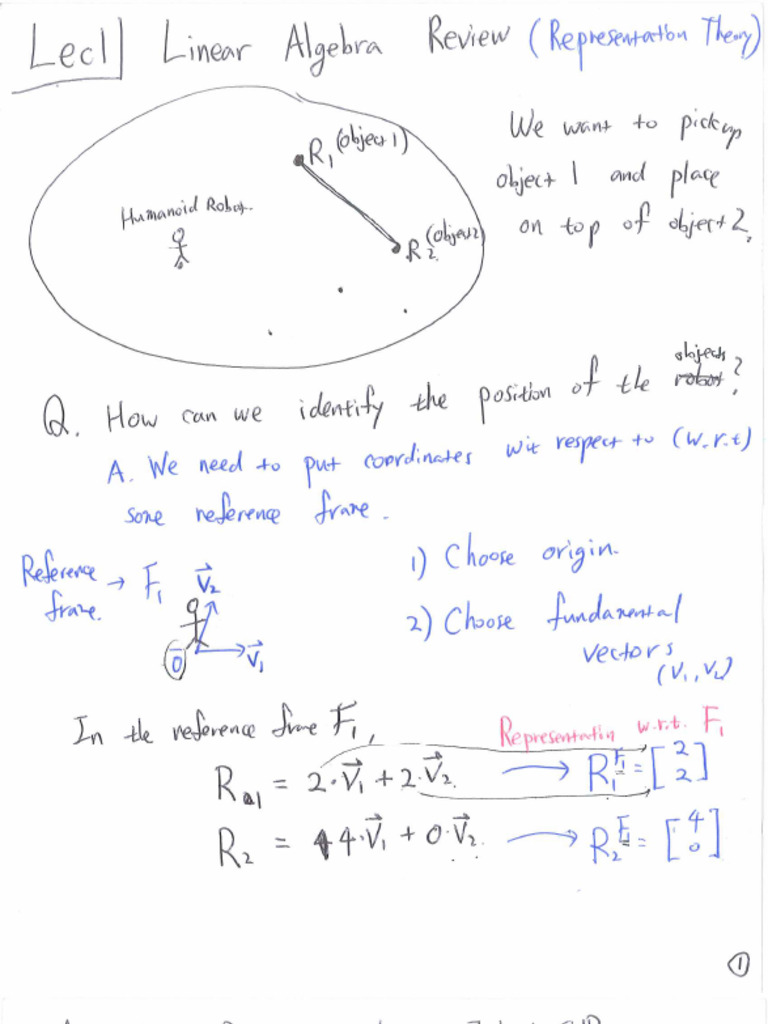 Lec1 Linear Algebra Review (Representation Theory)
We want to pick up
object 1 and place
on top of object 2.
R₁ (object 1)
Humanoid Robot.
R₂ (object 2)
Q. How can we identify the position of the objects?
A. We need to put coordinates wit respect to (w.r.t)
some reference frame.
Reference → F₁
frame.
V⃗₂
0
V⃗₁
1) Choose origin.
2) Choose fundamental
vectors
(V₁, V₂)
In the reference frame F₁,
Representatin w.r.t. F₁
R₁ = 2·V⃗₁ + 2·V⃗₂ → R₁^F₁ = [2 2]
R₂ = 4·V⃗₁ + 0·V⃗₂. → R₂^F₁ = [4 0]
1